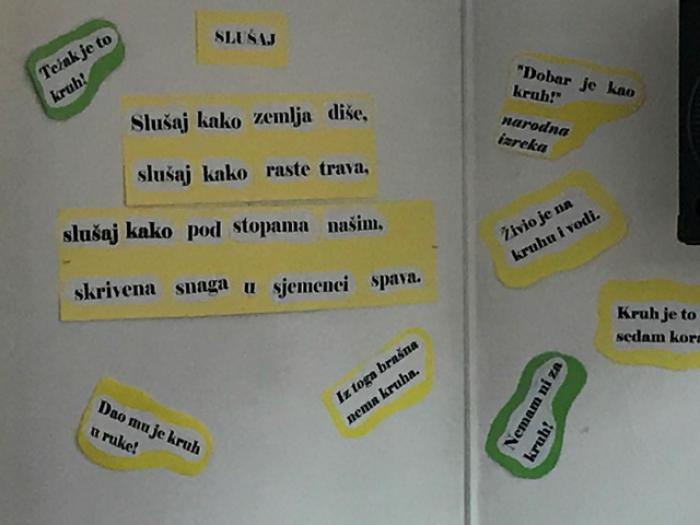 Težak je to
kruh!
SLUŠAJ
Slušaj kako zemlja diše,
slušaj kako raste trava,
slušaj kako pod stopama našim,
skrivena snaga u sjemenci spava.
Dao mu je kruh
u ruke!
Iz toga brašna
nema kruha.
"Dobar je kao
kruh!"
narodna
izreka
Živio je na
kruhu i vodi.
Kruh je to
sedam
Nemam ni za
kruh!